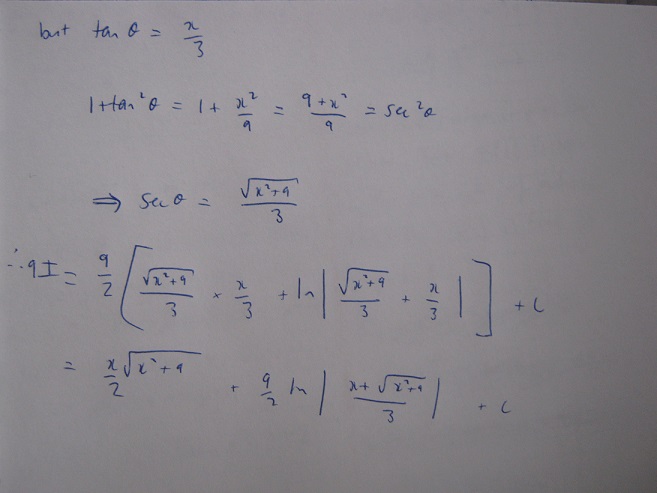 but tan θ = x/3
1+tan²θ = 1 + x²/9 = (9+x²)/9 = sec²θ
⇒ sec θ = √(x²+9)/3
∴ 9I = 9/2 [ √(x²+9)/3 × x/3 + ln | √(x²+9)/3 + x/3 | ] + c
= x/2 √(x²+9) + 9/2 ln | (x+√(x²+9))/3 | + c